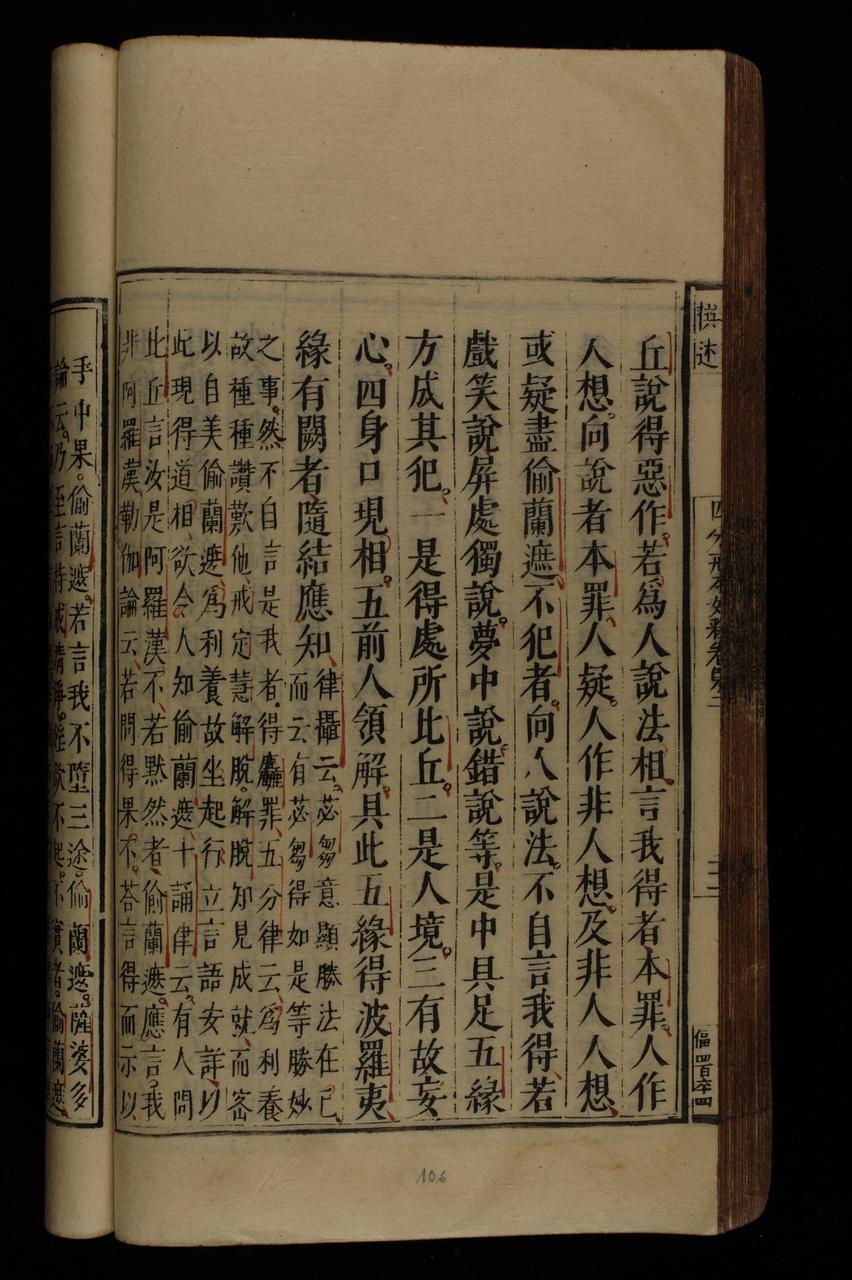 撰述
四分戒本如釋卷第二
二
傴四百卒四
丘說得惡作。若爲人說法相。言我得者。本罪。人作
人想。向說者本罪。人疑。人作非人想。及非人人想。
或疑盡偷蘭遮。不犯者。向人說法。不自言我得。若
戲笑說。屏處獨說。夢中說。錯說等。是中具足五緣
方成其犯。一是得處所比丘。二是人境。三有故妄
心。四身口現相。五前人領解。具此五緣得波羅夷。
緣有闕者。隨結應知。
律攝云。苾芻意顯勝法在己。
而云有苾芻得如是等勝妙
之事。然不自言是我者。得麤罪。五分律云。爲利養
故種種讚歎他。戒定慧解脫。解脫知見成就。而密
以自美偷蘭遮。爲利養故坐起行立言語安詳。以
此現得道相。欲令人知偷蘭遮。十誦律云。有人問
比丘言汝是阿羅漢不。若默然者。偷蘭遮。應言。我
非阿羅漢。勒伽論云。若問得果不。荅言得而示以
手中果。偷蘭遮。若言我不墮三途。偷蘭遮。薩婆多
論云。乃至言持戒清淨。婬欲不起。不實者。偷蘭遮。
106